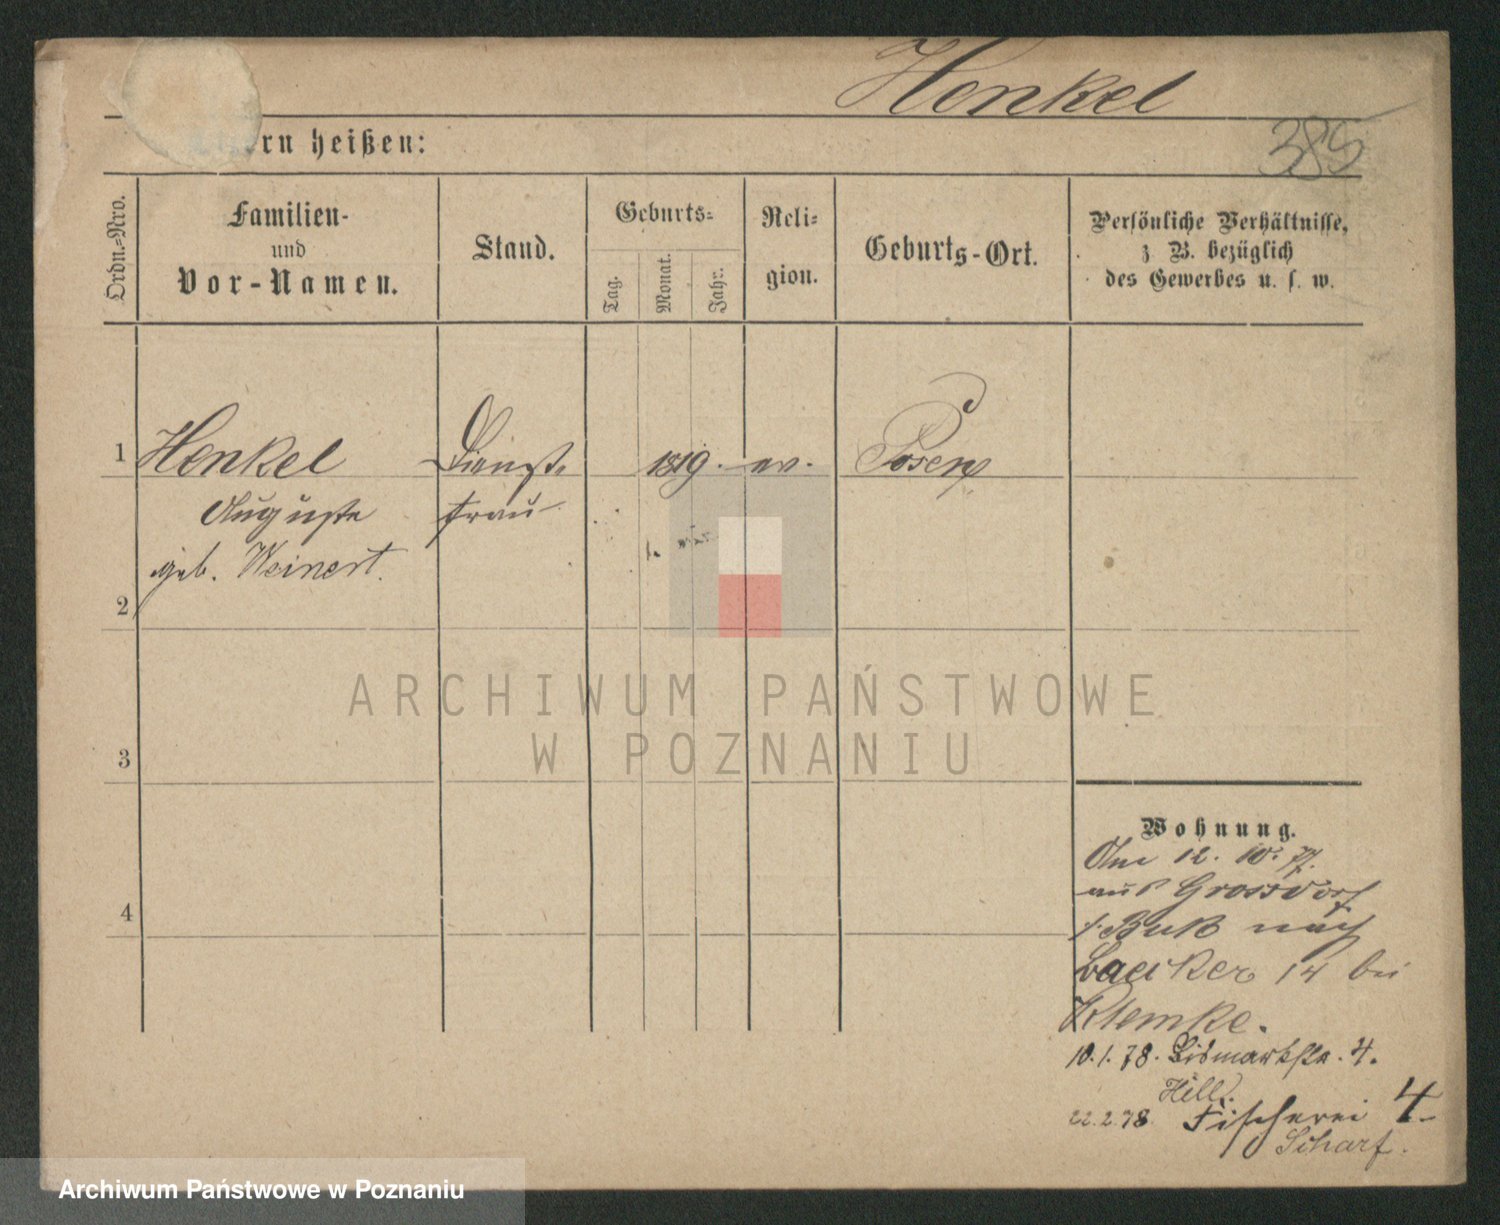 Henkel
385
Eltern heißen:
Ordn.-Nro.
Familien-
und
Vor-Namen.
Stand.
Geburts-
Tag.
Monat.
Jahr.
Reli-
gion.
Geburts-Ort.
Persönliche Verhältnisse,
z B. bezüglich
des Gewerbes u. s. w.
1 Henkel Dienst- 1819. ev. Posen
Auguste frau
geb. Weinert.
2
3
4
Wohnung.
Am 12. 10. 77.
aus Grossdorf
Buk nach
Baecker 14 bei
Klemke.
10.1.78. Bismarkstr. 4.
Hill.
22.2.78. Fischerei 4
Scharf.
ARCHIWUM PAŃSTWOWE
W POZNANIU
Archiwum Państwowe w Poznaniu